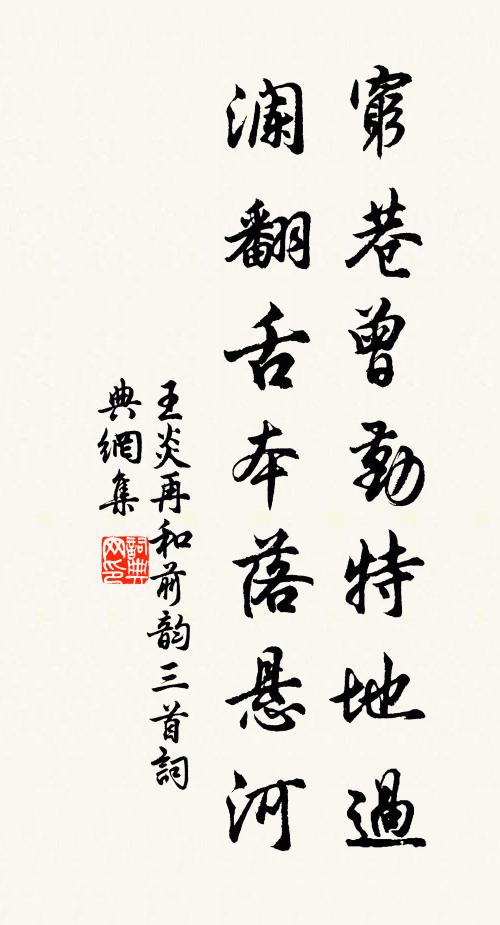 窮巷曾勤特地過
瀾翻舌本落懸河
王炎再和前韵三首詞
典網集
詞典网印